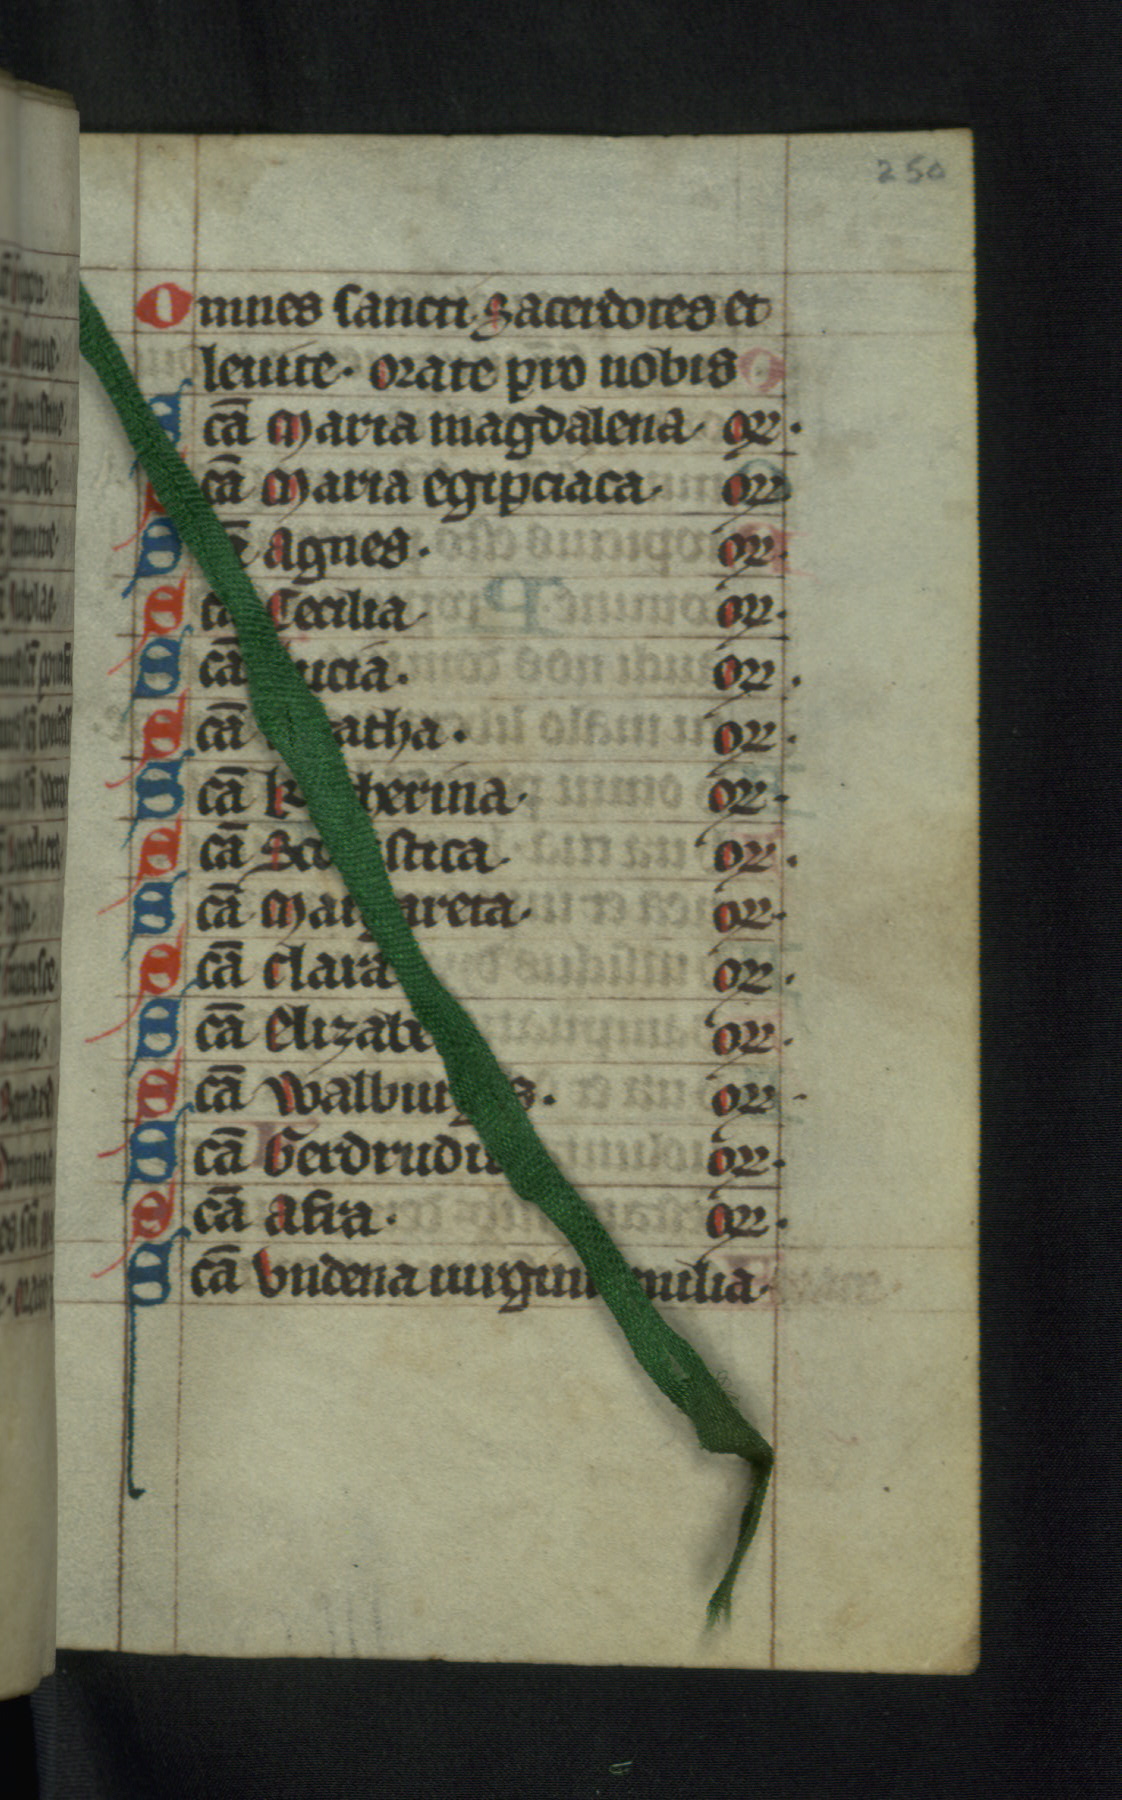 250
Omnes sancti sacerdotes et
leuite. Orate pro nobis
Scā Maria magdalena. or.
Scā Maria egipciaca. or.
Agnes. or.
Scā Cecilia or.
Scā Lucia. or.
Scā Agatha. or.
Scā Katherina. or.
Scā Scolastica. or.
Scā Margareta. or.
Scā Clara or.
Scā Elizabe or.
Scā Walburgis. or.
Scā Gerdrudis or.
Scā Afra. or.
Scā Vndena uirginū milia.